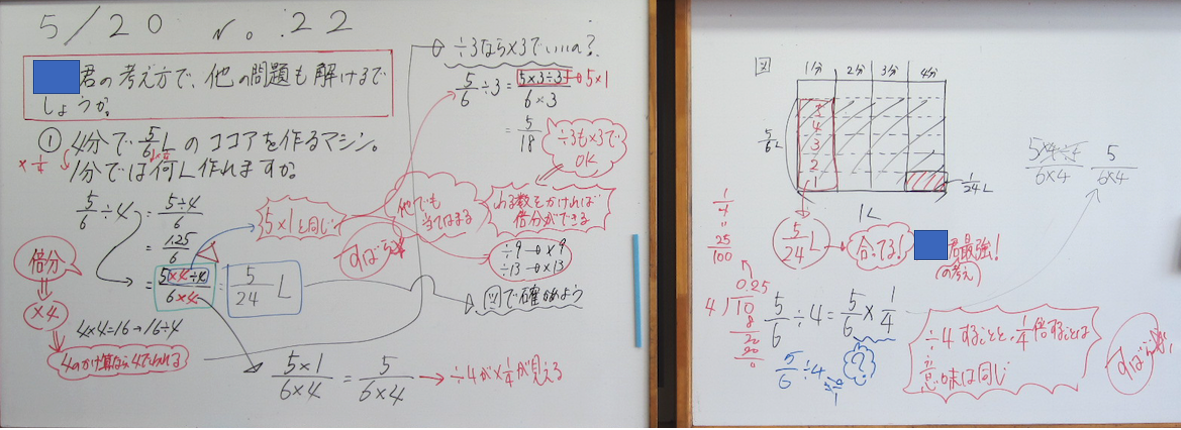 5/20 No.22
君の考え方で、他の問題も解けるで
しょうか。
① 4分で5/6Lのココアを作るマシン。
×1/4
1分では何L作れますか。
5/6÷4 = 5÷4/6
= 1.25/6
= 5×4÷4/6×4 = 5/24 L
倍分
×4
4×4=16→16÷4
4のかけ算なら4でわれる
5×1と同じ
5×1/6×4 = 5/6×4 → ÷4が×1/4が見える
÷3なら×3でいいの?
5/6÷3 = 5×3÷3/6×3 → 5×1
= 5/18
÷3も×3で
OK
他でも
当てはまる
わる数をかければ
倍分ができる
÷9→×9
÷13→×13
図で確かめよう
すばらしい
図
1分 2分 3分 4分
5/6L
5
4
3
2
1
1/24L
1L
5/24L
合ってる!
君最強!
(の考え)
5×4÷4/6×4 5/6×4
1/4
=
25/100
0.25
4)10
8
20
20
0
5/6÷4=5/6×1/4
5/6÷4
?
÷4することと、1/4倍することは
意味は同じ
すばらしい